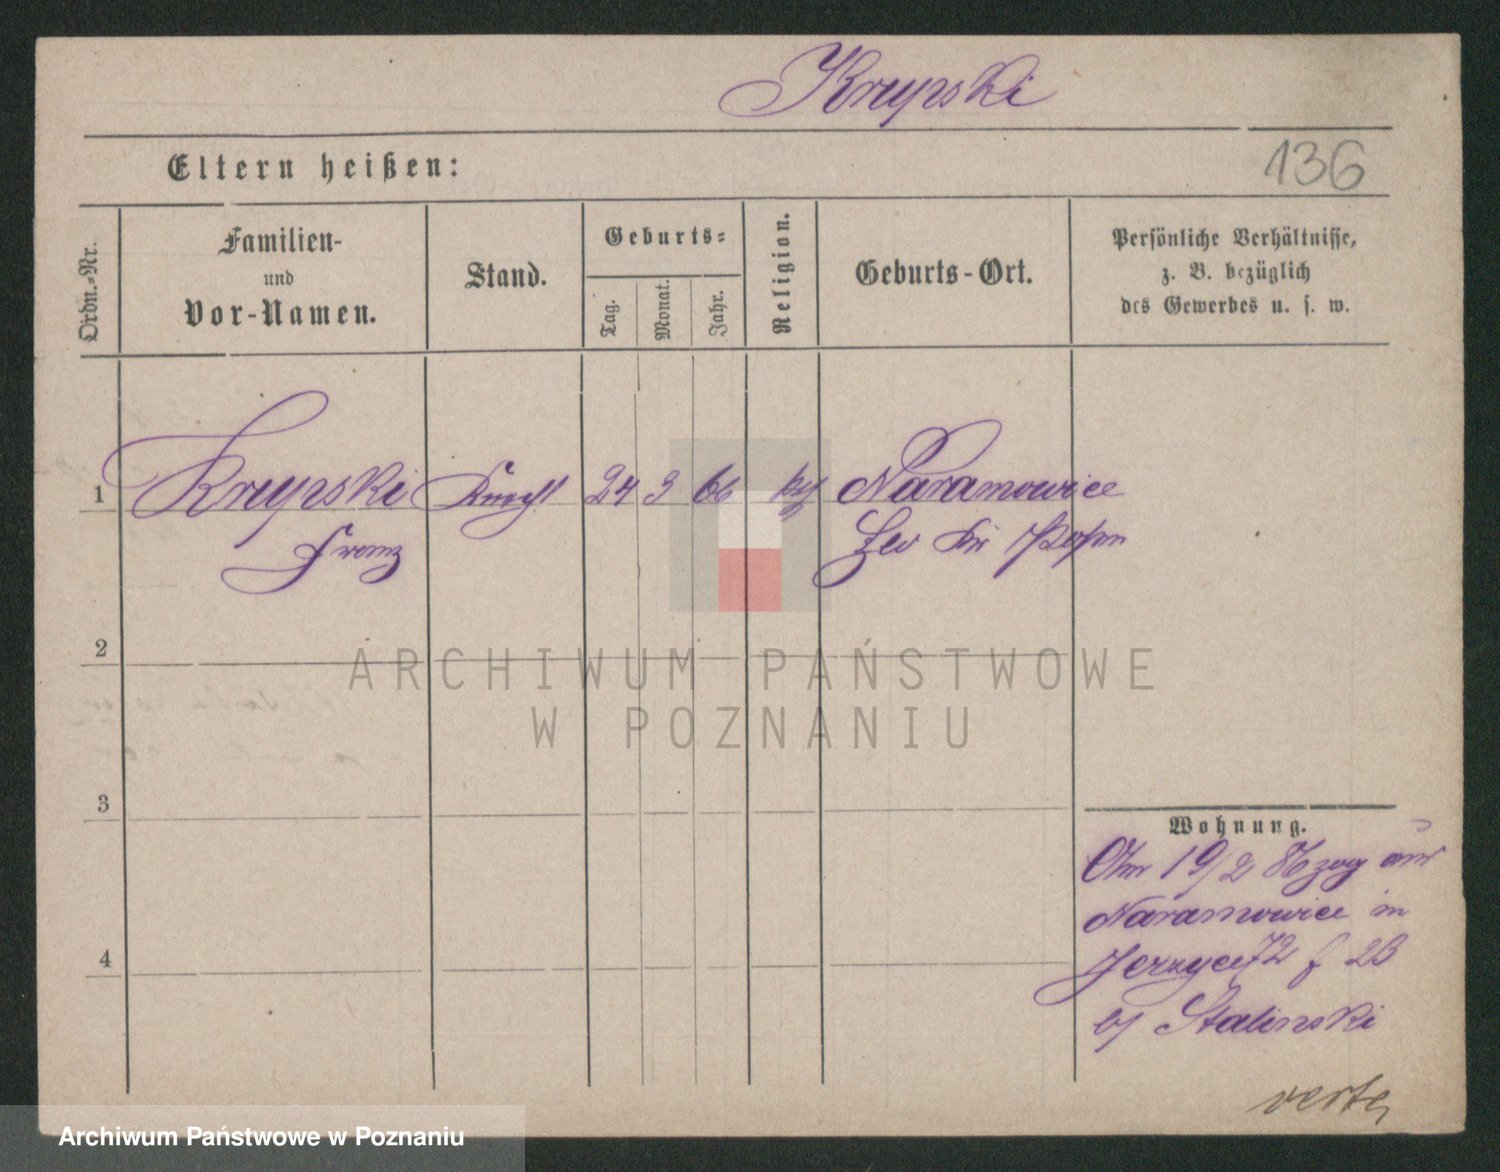 Krupski
136
Eltern heißen:
Ordn.-Nr.
Familien-
und
Vor-Namen.
Stand.
Geburts-
Tag.
Monat.
Jahr.
Religion.
Geburts-Ort.
Persönliche Verhältnisse,
z. B. bezüglich
des Gewerbes u. s. w.
1 Knecht 24 3 66 Naramowice
Franz Posen
2
3
4
Wohnung.
19/2 86 zog aus
Naramowice in
Jerzyce 72 2B
b/ Stalinski
verte
ARCHIWUM PAŃSTWOWE
W POZNANIU
Archiwum Państwowe w Poznaniu